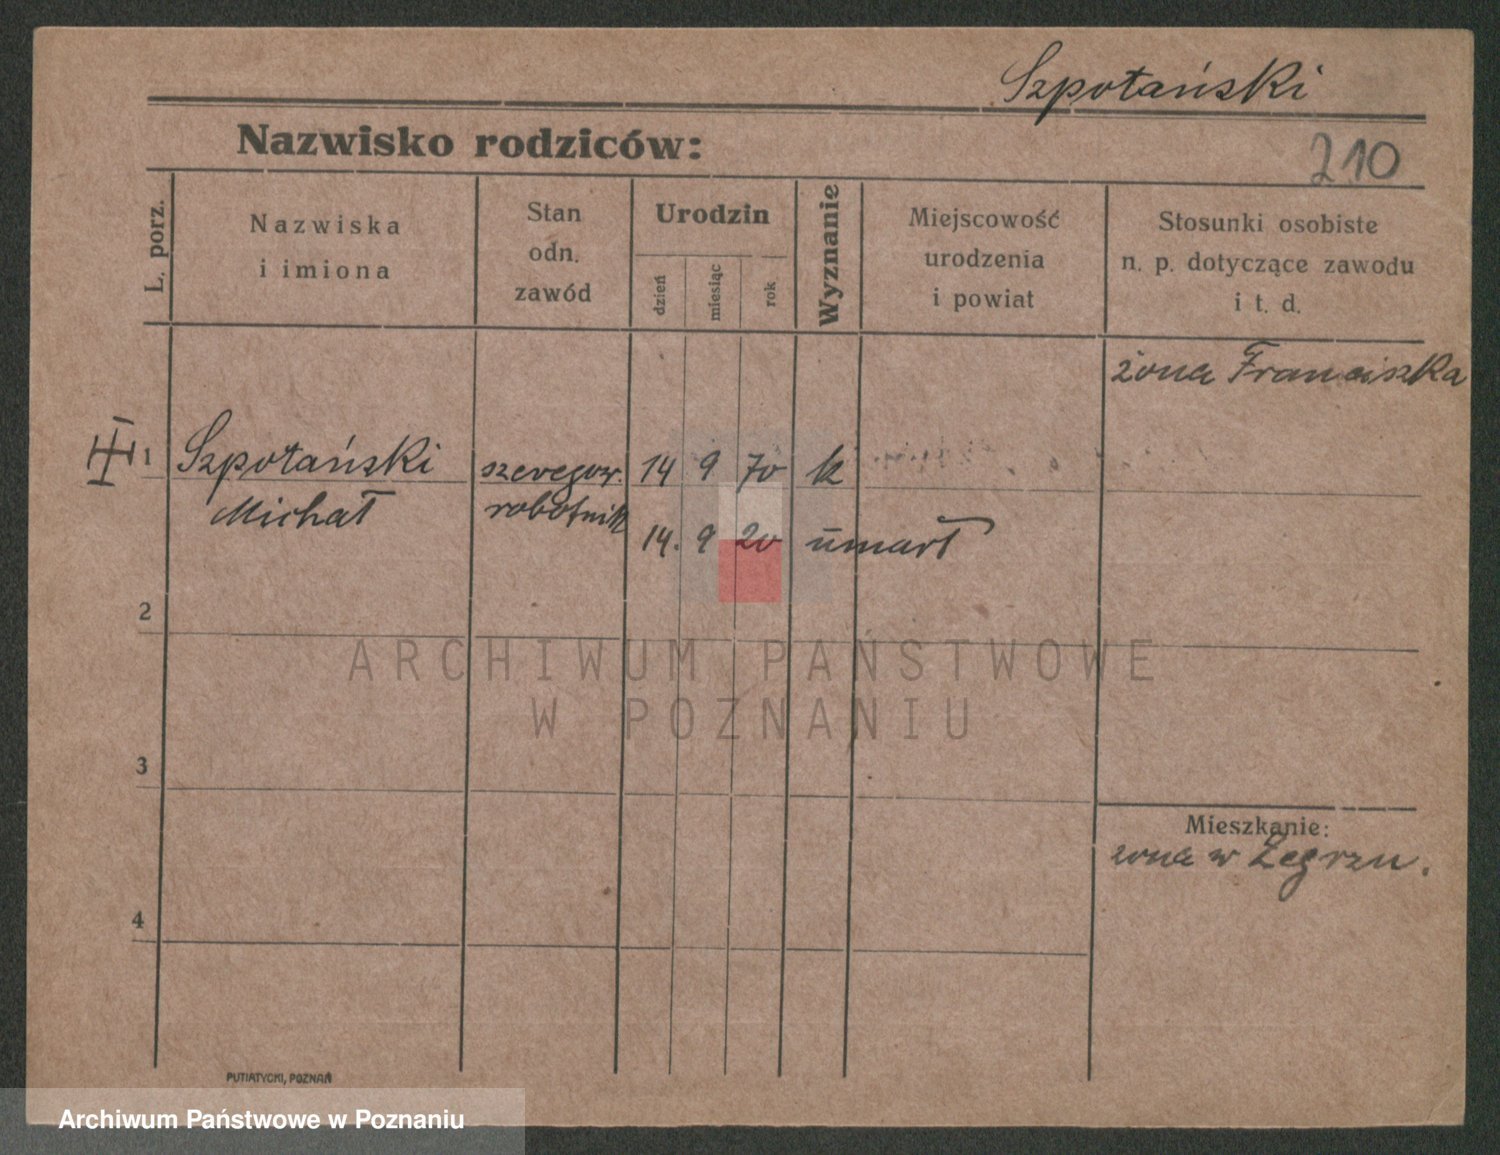 Szpotański
Nazwisko rodziców:
210
L. porz.
Nazwiska
i imiona
Stan
odn.
zawód
Urodzin
dzień
miesiąc
rok
Wyznanie
Miejscowość
urodzenia
i powiat
Stosunki osobiste
n. p. dotyczące zawodu
i t. d.
żona Franciszka
1 Szpotański szeregow. 14 9 70 k
Michał robotnik
14. 9 20 umarł
2
3
4
Mieszkanie:
żona w Żegrzu.
PUTIATYCKI, POZNAŃ
ARCHIWUM PAŃSTWOWE
W POZNANIU
Archiwum Państwowe w Poznaniu